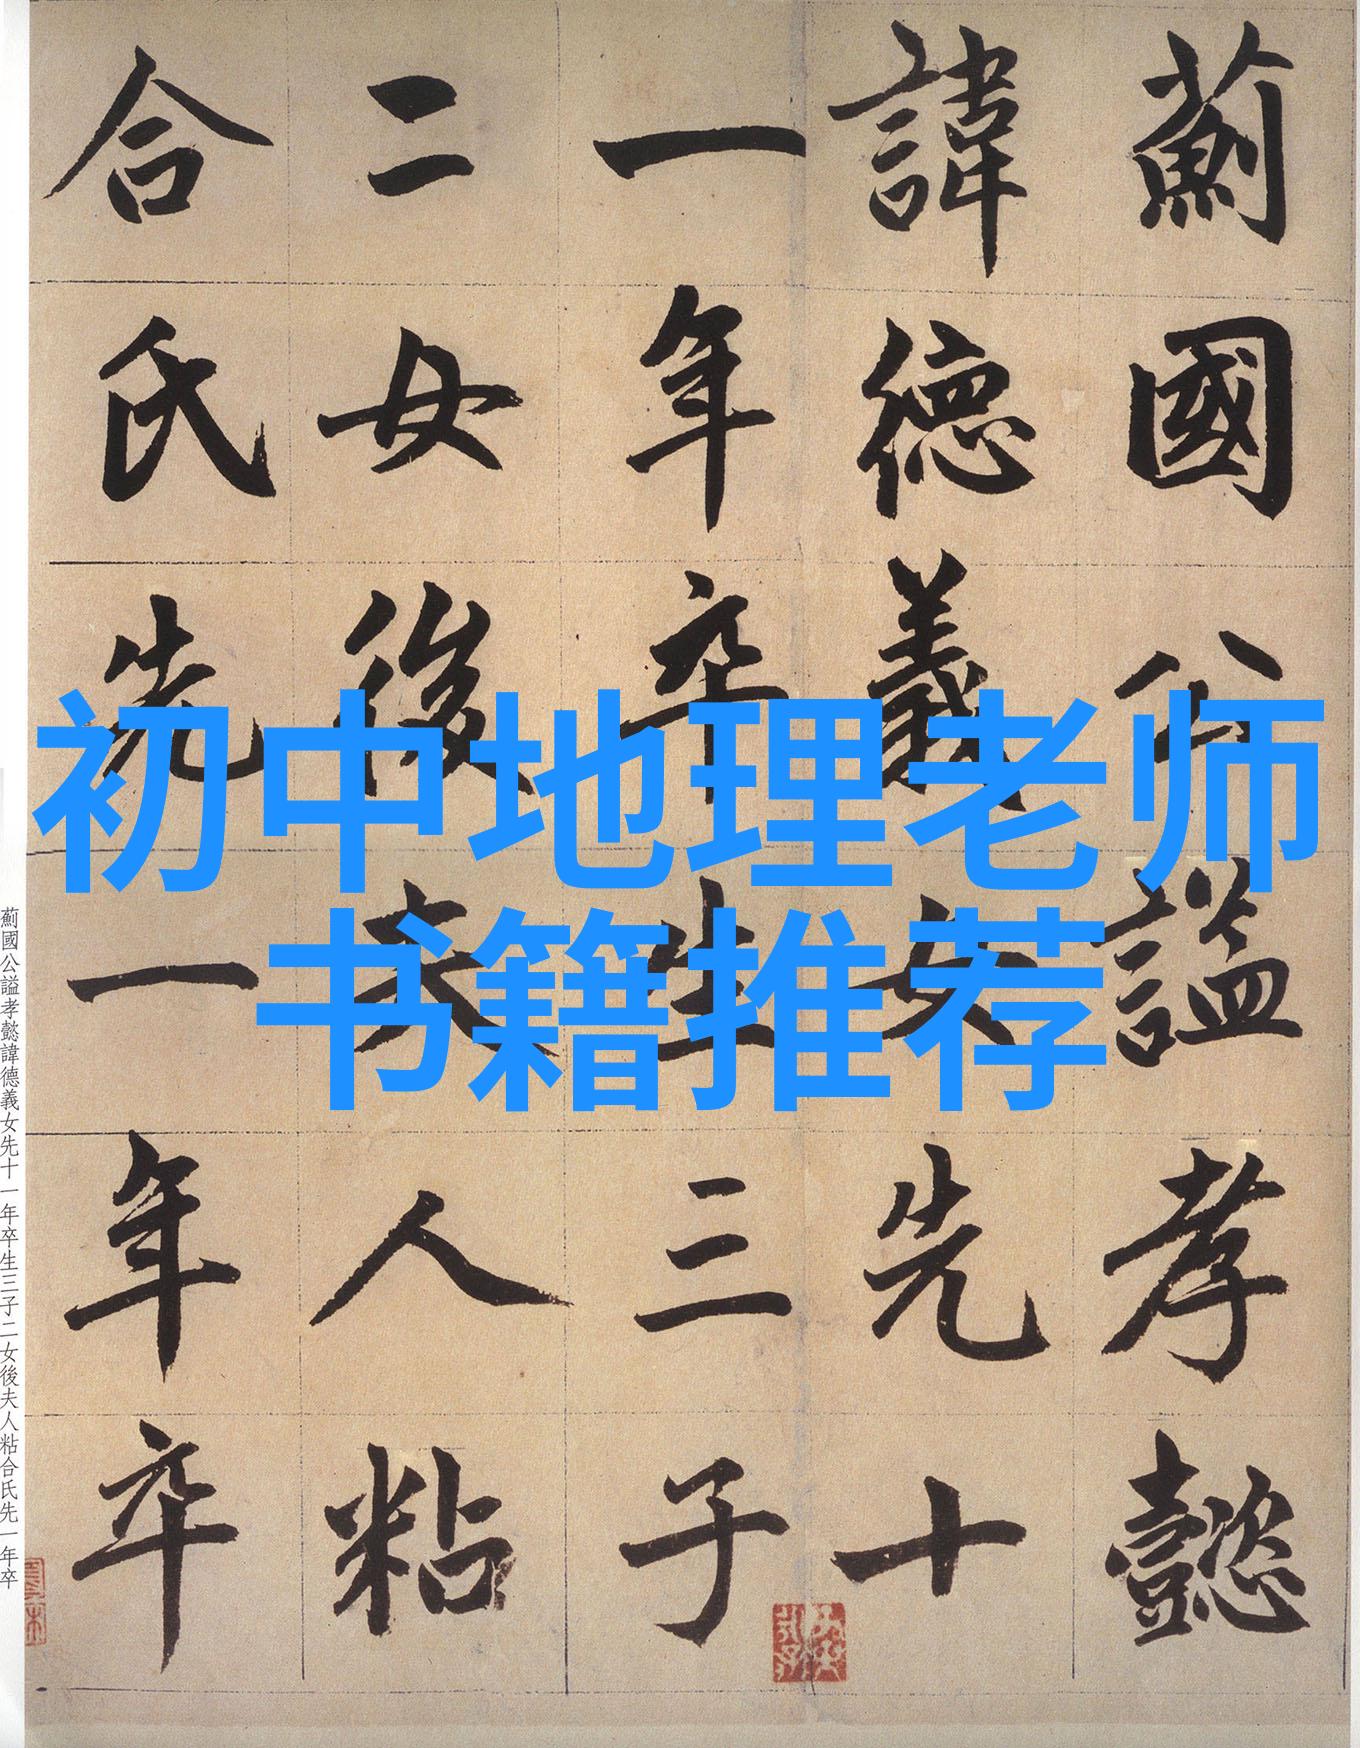 初中地理老师
书籍推荐
薊國公謚孝懿
諱德義女先十
一年卒生三子
二女後夫人粘
合氏先一年卒
薊國公謚孝懿諱德義女先十一年卒生三子二女後夫人粘合氏先一年卒